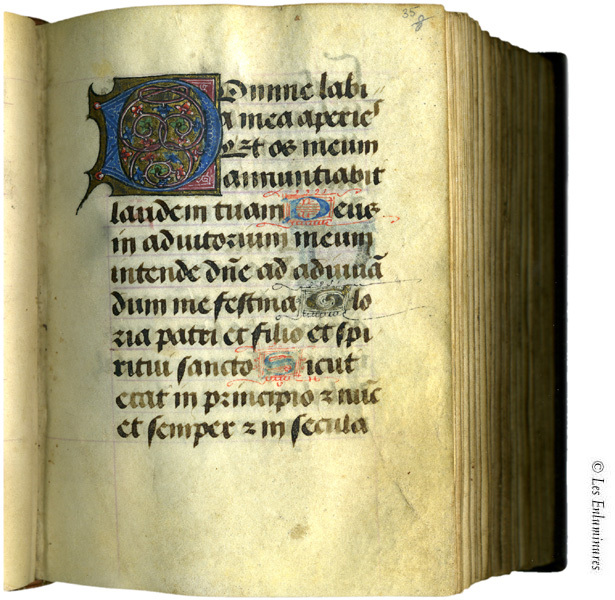 35
Domine labi
a mea aperies
Et os meum
annuntiabit
laudem tuam Deus
in adiutorium meum
intende dñe ad adiuuã
dum me festina Glo
ria patri et filio et spi
ritui sancto Sicut
erat in principio ⁊ nũc
et semper ⁊ in secula
© Les Enluminures